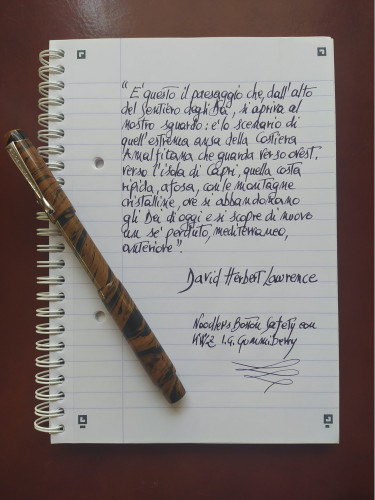 “E' questo il paesaggio che, dall'alto
del sentiero degli Dei, si apriva al
nostro sguardo: è lo scenario di
quell'estrema ansa della Costiera
Amalfitana che guarda verso ovest,
verso l'isola di Capri, quella costa
ripida, afosa, con le montagne
cristalline, ove si abbandonano
gli Dei di oggi e si scopre di nuovo
un se' perduto, mediterraneo,
anteriore”.
David Herbert Lawrence
Noodlers Boston Safety con
I.G. Gummiberry